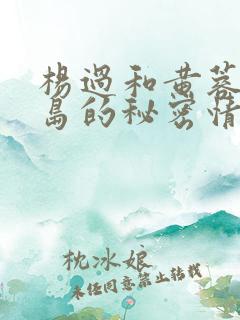 杨过和黄蓉
岛的秘密情
枕冰娘
未经同意禁止转载